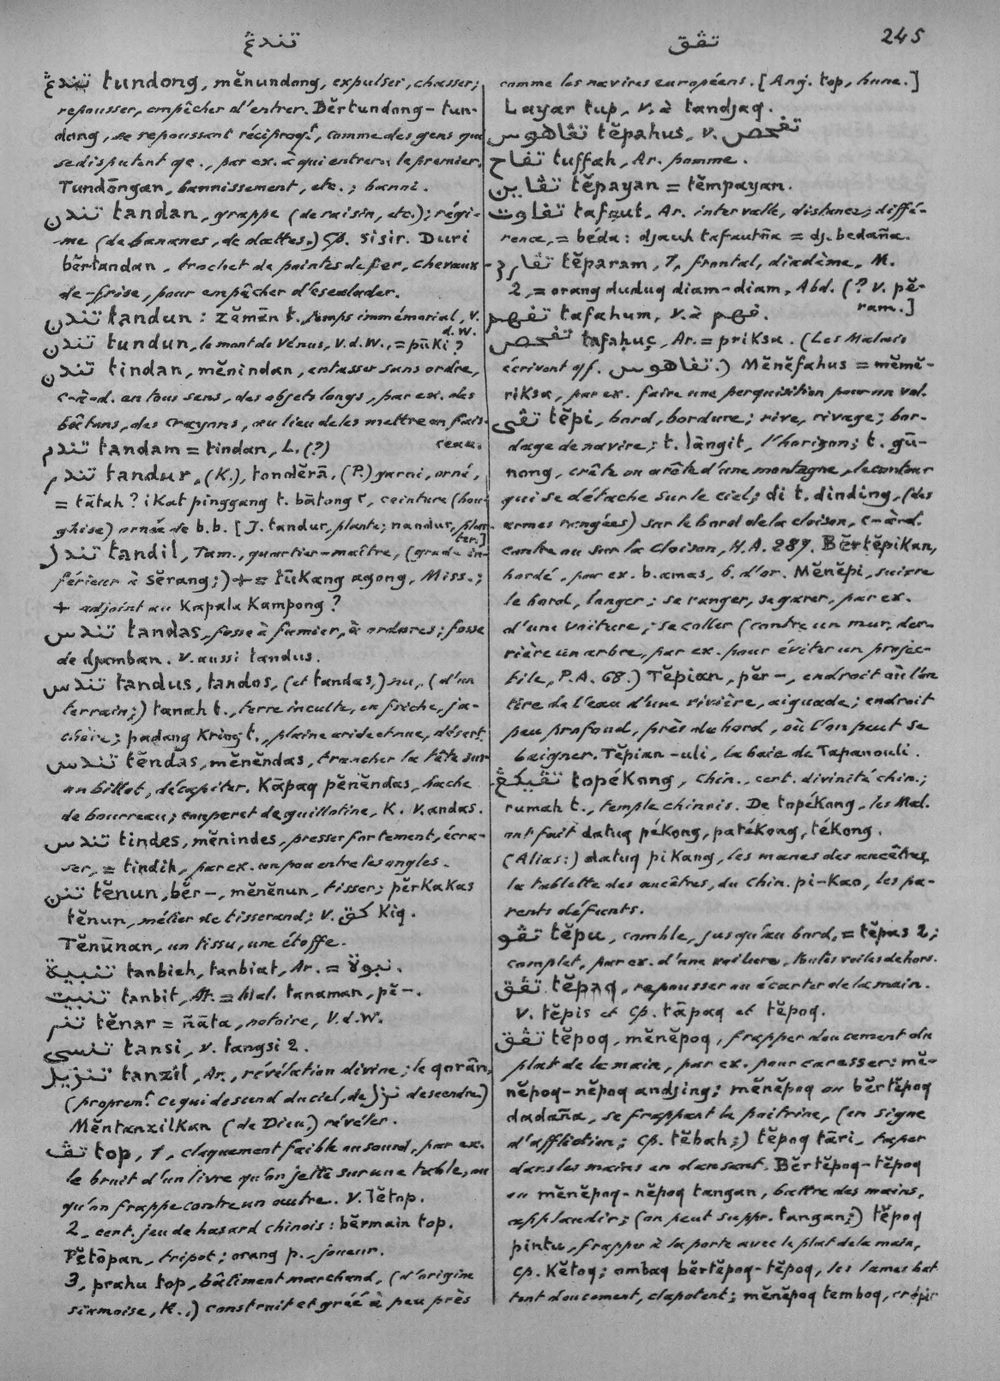 تندڠ
تڤق
245
تندڠ tundong, mĕnundong, expulser, chasser;
repousser, empêcher d'entrer. Bĕrtundong-tun-
dong, se repoussant réciproqt, comme des gens qui
se disputent qc., par ex. à qui entrera le premier.
Tundōngan, bannissement, etc.; banni.
تندن tandan, grappe (de raisin, etc.); régi-
me (de bananes, de dattes.) Cp. sisir. Duri
bĕrtandan, trochet de pointes de fer, chevaux-
de-frise, pour empêcher d'escalader.
تندن tandun: zĕmān t. temps immémorial, V.
d.W.
تندن tundun, le mont de Vénus, V.d.W., = pūki?
تندن tindan, mĕnindan, entasser sans ordre,
c-à-d. en tous sens, des objets longs, par ex. des
bâtons, des crayons, au lieu de les mettre en fais-
ceau.
تندم tandam = tindan, L. (?)
تندر tandur, (K.), tondĕrā, (P.) garni, orné,
= tātah? ikat pinggang t. bātong 2, ceinture (bou-
ghise) ornée de b.b. [J. tandur, plante; nandur, plan-
ter.]
تندل tandil, Tam., quartier-maître, (grade in-
férieur à sĕrang;) + = tūkang agong, Miss.;
+ adjoint au Kapala Kampong?
تندس tandas, fosse à fumier, à ordures; fosse
de djamban. V. aussi tandus.
تندس tandus, tandos, (et tandas,) nu, (d'un
terrain;) tanah t., terre inculte, en friche, ja-
chère; padang Kring t., plaine aride et nue, désert.
تندس tĕndas, mĕnĕndas, trancher la tête sur
un billot, décapiter. Kāpaq pĕnĕndas, hache
de bourreau; couperet de guillotine, K. V. andas.
تندس tindes, mĕnindes, presser fortement, écra-
ser, = tindih, par ex. un pou entre les ongles.
تنن tĕnun, bĕr-, mĕnĕnun, tisser; pĕrkakas
tĕnun, métier de tisserand; V. كيق Kiq.
Tĕnūnan, un tissu, une étoffe.
تنبيه tanbieh, tanbiat, Ar. = نبوة.
تنبيت tanbit, Ar. = Mal. tanaman, pĕ-.
تنر tĕnar = ñāta, notoire, V.d.W.
تنسي tansi, v. tangsi 2.
تنزيل tanzil, Ar., révélation divine; le qorân,
(propremt ce qui descend du ciel, de نزل descendre)
Mĕntanzilkan (de Dieu,) révéler.
تڤ top, 1, claquement faible ou sourd, par ex.
le bruit d'un livre qu'on jette sur une table, ou
qu'on frappe contre un autre. V. lĕtop.
2, cert. jeu de hasard chinois: bĕrmain top.
Pĕtōpan, tripot; orang p., joueur.
3, prahu top, bâtiment marchand, (d'origine
siamoise, K.,) construit et gréé à peu près
comme les navires européens. [Ang. top, hune.]
Layar tup, V. à tandjaq.
تڤاهوس tĕpahus, v. تفحص
تفاح tuffah, Ar. pomme.
تڤاين tĕpayan = tĕmpayan.
تفاوت tafaut, Ar. intervalle, distance; diffé-
rence, = bēda: djauh tafautña = dj. bedaña.
تڤارم tĕparam, 1, frontal, diadème, M.
2, = orang duduq diam-diam, Abd. (? v. pĕ-
ram.]
تفهم tafahum, V. à فهم.
تفحص tafaḥuç, Ar. = priksa. (Les Malais
écrivent qf. تفاهوس.) Mĕnĕfahus = mĕmĕ-
riksa, par ex. faire une perquisition pour un vol.
تڤي tĕpi, bord, bordure; rive, rivage; bor-
dage de navire; t. lāngit, l'horizon; t. gū-
nong, crête ou arête d'une montagne, le contour
qui se détache sur le ciel; di t. dinding, (des
armes rangées) sur le bord de la cloison, c-à-d.
contre ou sur la cloison, H.A. 289. Bĕrtĕpikan,
bordé, par ex. b. amas, b. d'or. Mĕnĕpi, suivre
le bord, longer; se ranger, se garer, par ex.
d'une voiture; se coller (contre un mur, der-
rière un arbre, par ex. pour éviter un projec-
tile, P.A. 68.) Tĕpian, pĕr-, endroit où l'on
tire de l'eau d'une rivière, aiguade; endroit
peu profond, près du bord, où l'on peut se
baigner. Tĕpian-uli, la baie de Tapanouli.
تڤيكڠ topékong, Chin., cert. divinité chin.;
rumah t., temple chinois. De topékong, les Mal.
ont fait datuq pékong, patékong, tékong.
(Alias:) datuq pikang, les manes des ancêtres,
la tablette des ancêtres, du Chin. pi-kao, les pa-
rents défunts.
تڤو tĕpu, comble, jusqu'au bord, = tĕpas 2;
complet, par ex. d'une voilure, toutes voiles dehors.
تڤق tĕpaq, repousser ou écarter de la main.
V. tĕpis et Cp. tāpaq et tĕpoq.
تڤق tĕpoq, mĕnĕpoq, frapper doucement du
plat de la main, par ex. pour caresser: mĕ-
nĕpoq-nĕpoq andjing; mĕnĕpoq ou bĕrtĕpoq
dadaña, se frappant la poitrine, (en signe
d'affliction; Cp. tĕbah;) tĕpoq tāri, taper
dans les mains en dansant. Bĕrtĕpoq-tĕpoq
ou mĕnĕpoq-nĕpoq tangan, battre des mains,
applaudir; (on peut suppr. tangan;) tĕpoq
pintu, frapper à la porte avec le plat de la main,
Cp. Kĕtoq; ombaq bĕrtĕpoq-tĕpoq, les lames bat-
tent doucement, clapotent; mĕnĕpoq temboq, crépir